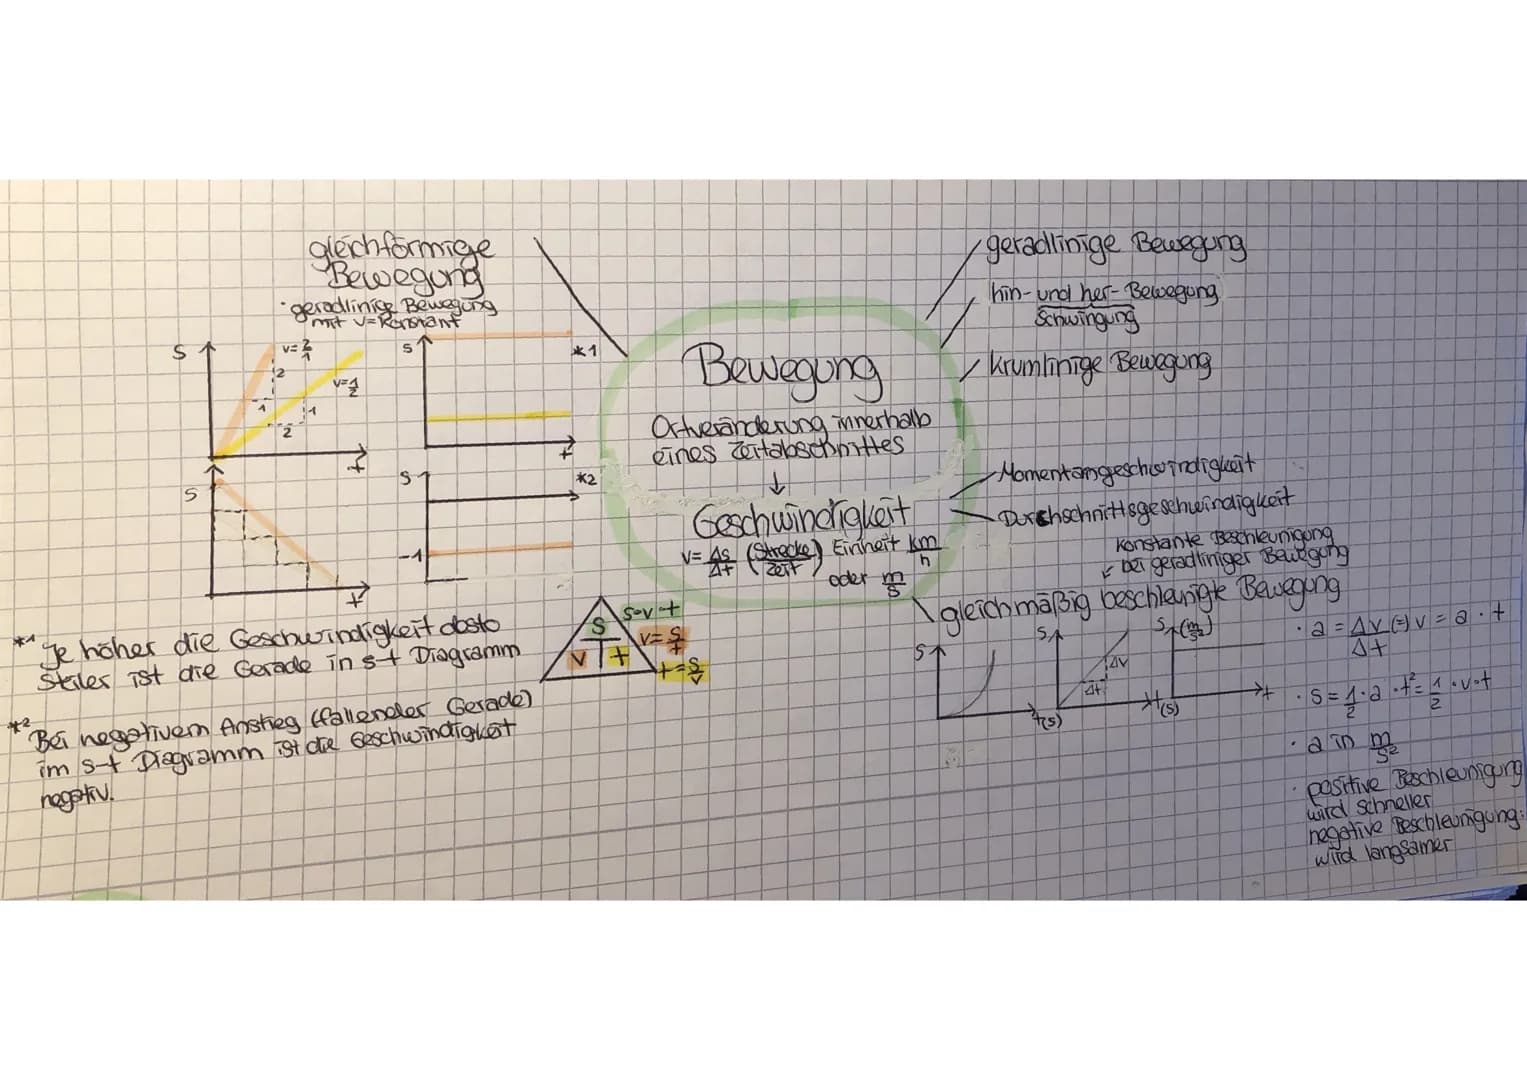 gleichförmige
Bewegung
· geradlinige Bewegung
mit v=Konstant
s
v=2/1
2
1
v=1/2
1
2
t
s
*1
t
s
t
s
*2
-1
*1 Je höher die Geschwindigkeit dosto
steiler ist die Gerade in s-t Diagramm
*2 Bei negativem Anstieg (fallender Gerade)
im s-t Diagramm ist die Geschwindigkeit
negativ.
Bewegung
Ortveränderung innerhalb
eines Zeitabschnittes
↓
Geschwindigkeit
v= Δs/Δt (Strecke/Zeit) Einheit km/h
oder m/s
s
v
t
s=v·t
v=s/t
t=s/v
geradlinige Bewegung
hin- und her- Bewegung
Schwingung
Krumlinige Bewegung
Momentangeschwindigkeit
Durchschnittsgeschwindigkeit
konstante Beschleunigung
bei geradliniger Bewegung
gleichmäßig beschleunigte Bewegung
s
t(s)
s
Δv
Δt
t(s)
s (m/s²)
t
· a = Δv/Δt (=) v = a · t
· s = 1/2 · a · t² = 1/2 · v · t
· a in m/s²
· positive Beschleunigung
wird schneller
negative Beschleunigung:
wird langsamer